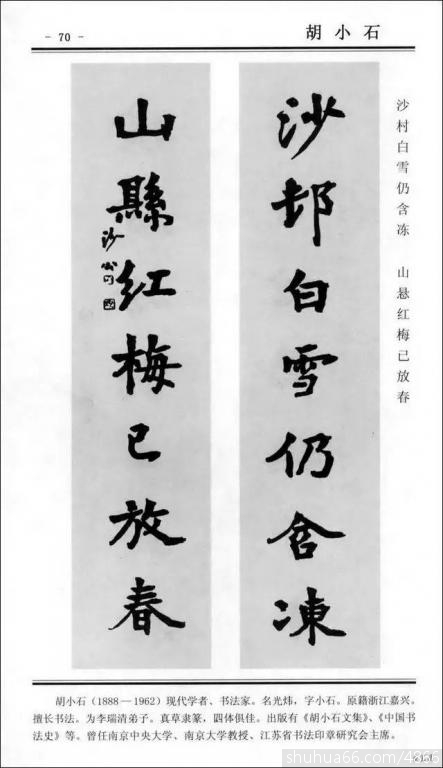 - 70 -
胡小石
沙村白雪仍含冻 山悬红梅已放春
沙邨白雪仍含凍
山縣紅梅已放春
沙公
胡小石(1888—1962)现代学者、书法家。名光炜，字小石。原籍浙江嘉兴。
擅长书法。为李瑞清弟子。真草隶篆，四体俱佳。出版有《胡小石文集》、《中国书
法史》等。曾任南京中央大学、南京大学教授、江苏省书法印章研究会主席。
shuhua66.com